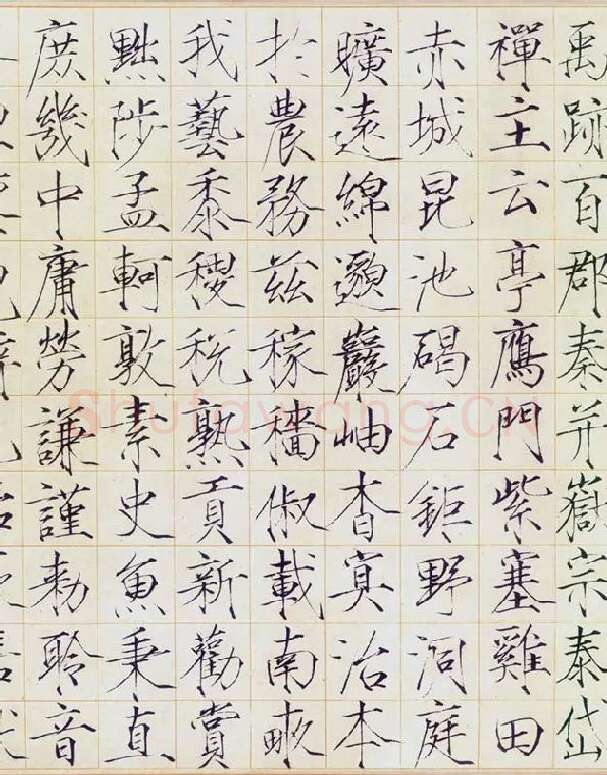 禹跡百郡秦并嶽宗泰岱
禪主云亭鴈門紫塞雞田
赤城昆池碣石鉅野洞庭
曠遠綿邈巖岫杳冥治本
於農務茲稼穡俶載南畝
我藝黍稷稅熟貢新勸賞
黜陟孟軻敦素史魚秉直
庶幾中庸勞謙謹敕聆音
Shufawang.CN